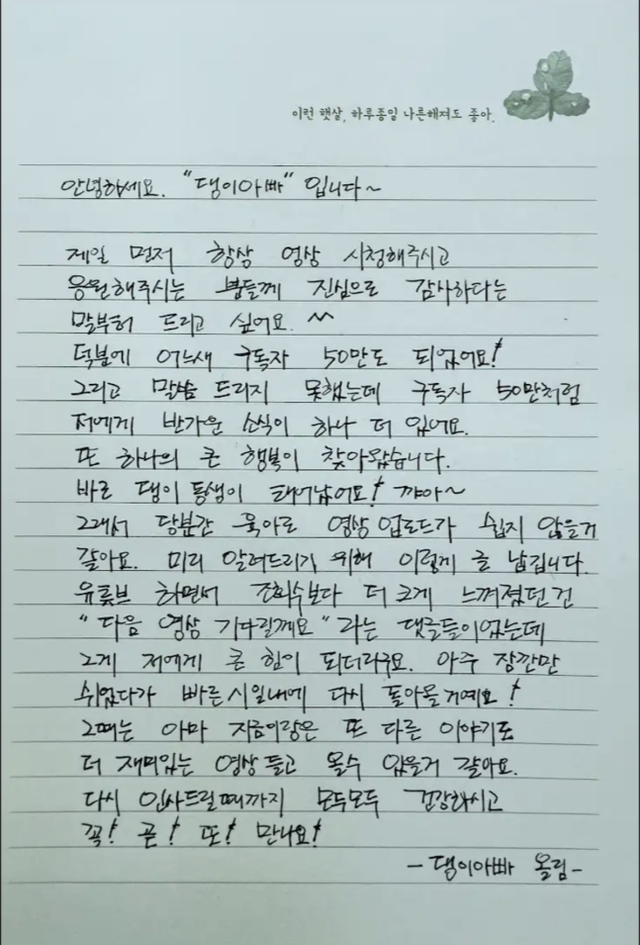 이런 햇살, 하루종일 나른해져도 좋아.
안녕하세요. "댕이아빠" 입니다~
제일 먼저 항상 영상 시청해주시고
응원해주시는 분들께 진심으로 감사하다는
말부터 드리고 싶어요. ^^
덕분에 어느새 구독자 50만도 되었어요!
그리고 말씀 드리지 못했는데 구독자 50만처럼
저에게 반가운 소식이 하나 더 있어요.
또 하나의 큰 행복이 찾아왔습니다.
바로 댕이 동생이 태어났어요! 꺄아~
그래서 당분간 육아로 영상 업로드가 쉽지 않을거
같아요. 미리 알려드리기 위해 이렇게 글 남깁니다.
유튜브 하면서 조회수보다 더 크게 느껴졌던 건
"다음 영상 기다릴께요" 라는 댓글들이었는데
그게 저에게 큰 힘이 되더라구요. 아주 잠깐만
쉬었다가 빠른시일내에 다시 돌아올거예요!
그때는 아마 지금이랑은 또 다른 이야기로
더 재미있는 영상 들고 올수 있을거 같아요.
다시 인사드릴때까지 모두모두 건강하시고
꼭! 곧! 또! 만나요!
-댕이아빠 올림-